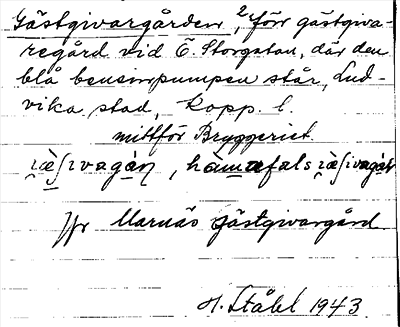 Gästgivargården, 2, förr gästgiva-
regård vid Ö. Storgatan, där den
blå bensinpumpen står, Lud-
vika stad, Kopp. l.
mittför Bryggeriet.
jfr Marnäs gästgivargård
H. Ståhl 1943